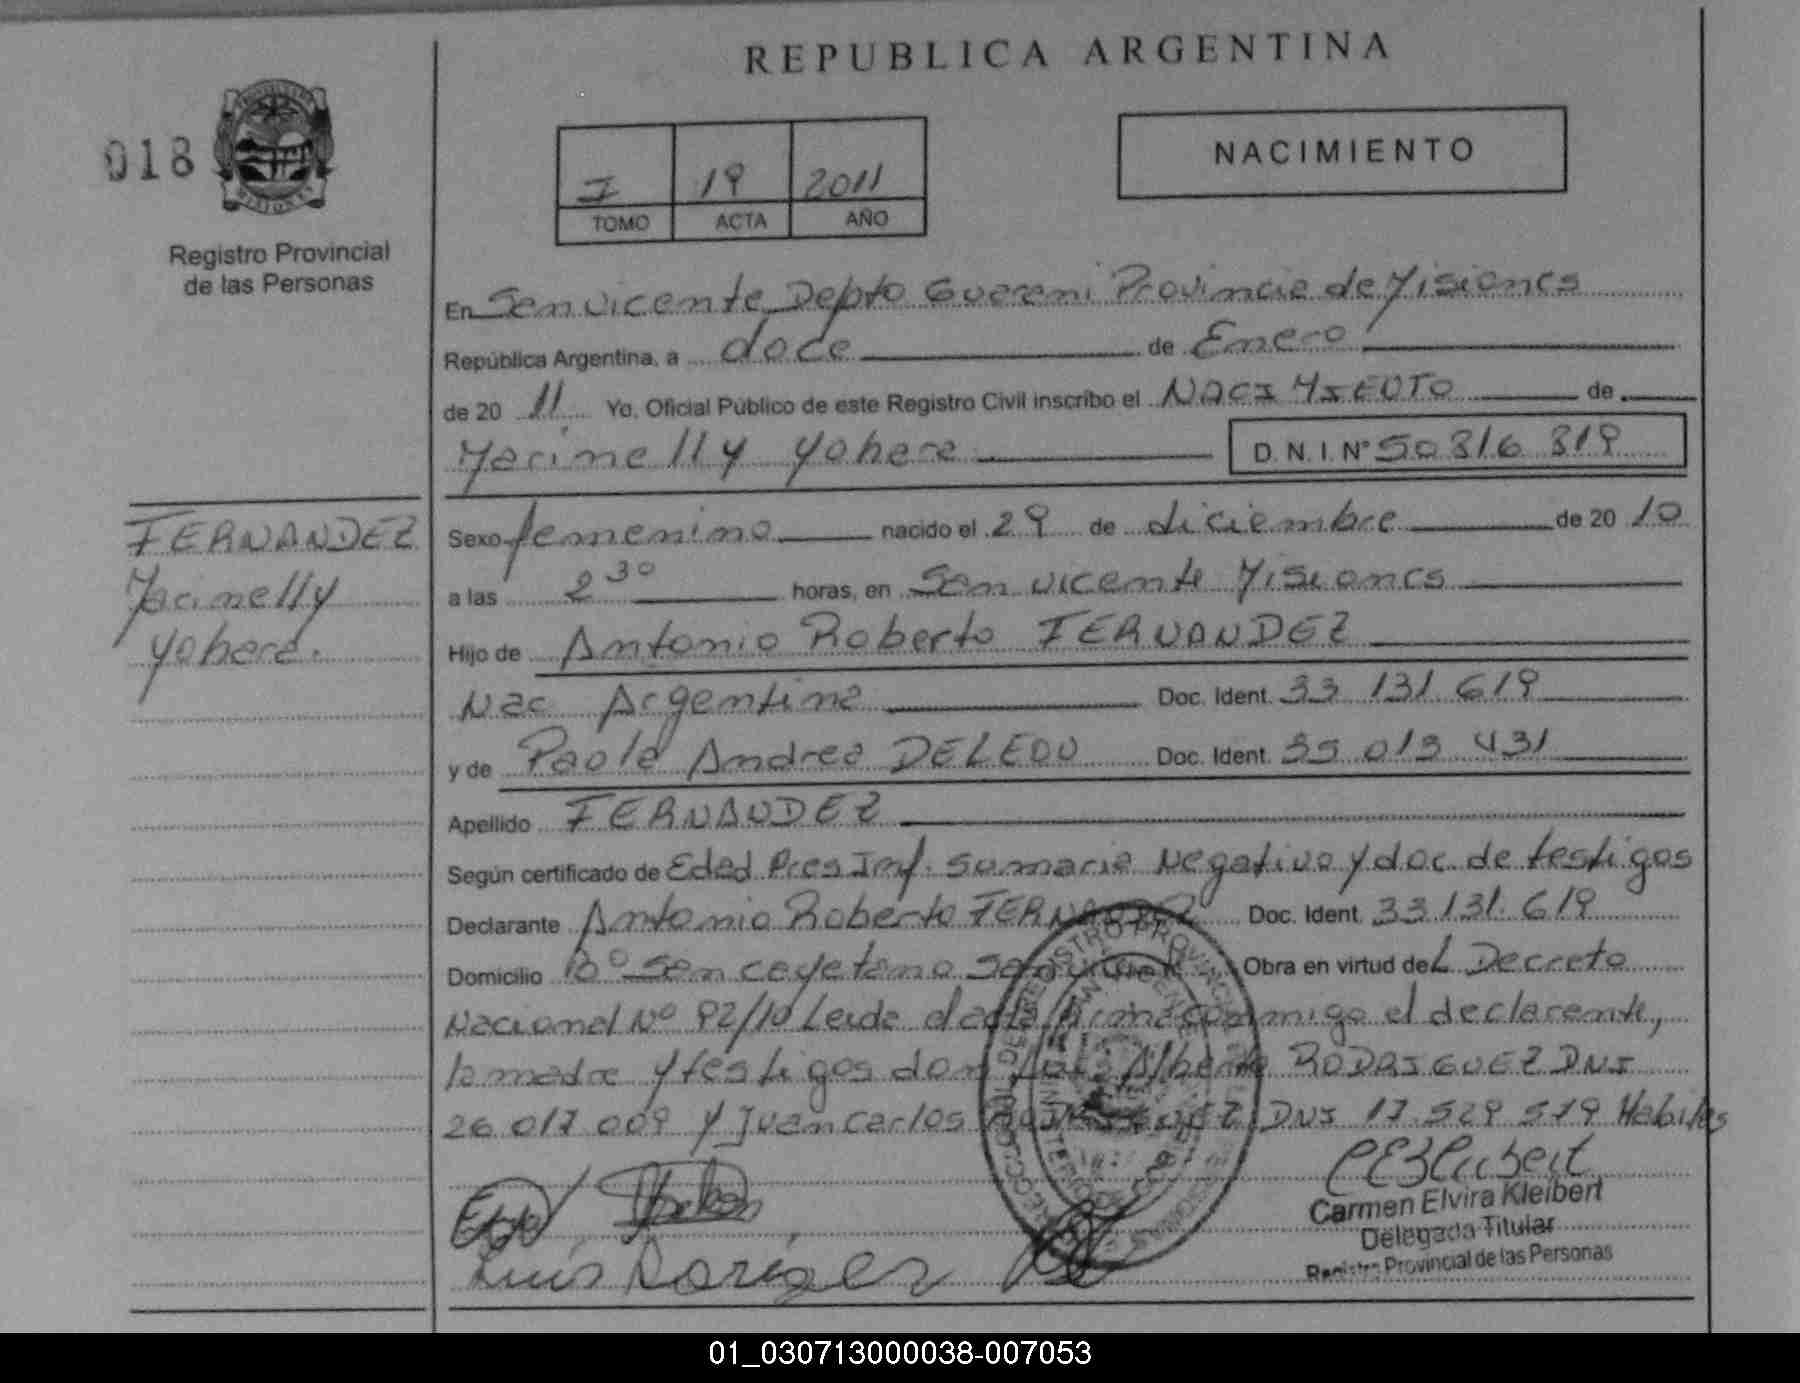 REPUBLICA ARGENTINA
018
NACIMIENTO
I 19 2011
TOMO ACTA AÑO
Registro Provincial
de las Personas
En San Vicente Depto Guarani Provincia de Misiones
República Argentina, a doce de Enero
de 20 11 Yo, Oficial Público de este Registro Civil inscribo el NACIMIENTO de
D.N.I. Nº 50 816 819
FERNANDEZ
Sexo femenino nacido el 29 de diciembre de 20 10
a las 2 30 horas, en San Vicente Misiones
Hijo de Antonio Roberto FERNANDEZ
Nac Argentina Doc. Ident. 33 131 619
y de Paola Andrea Doc. Ident. 35 013 431
Apellido FERNANDEZ
Según certificado de Edad Pres Inf. sumaria Negativo y doc de testigos
Declarante Antonio Roberto FERNANDEZ Doc. Ident. 33.131.619
Domicilio Bº San cayetano San Vicente Obra en virtud del Decreto
Nacional Nº 92/10 Leida el acta firma conmigo el declarante,
la madre y testigos don Luis Alberto RODRIGUEZ DNI
26 017 009 y Juan Carlos DNI 17.529 579 Habiles
Carmen Elvira Kleibert
Delegada Titular
Registro Provincial de las Personas
01_030713000038-007053